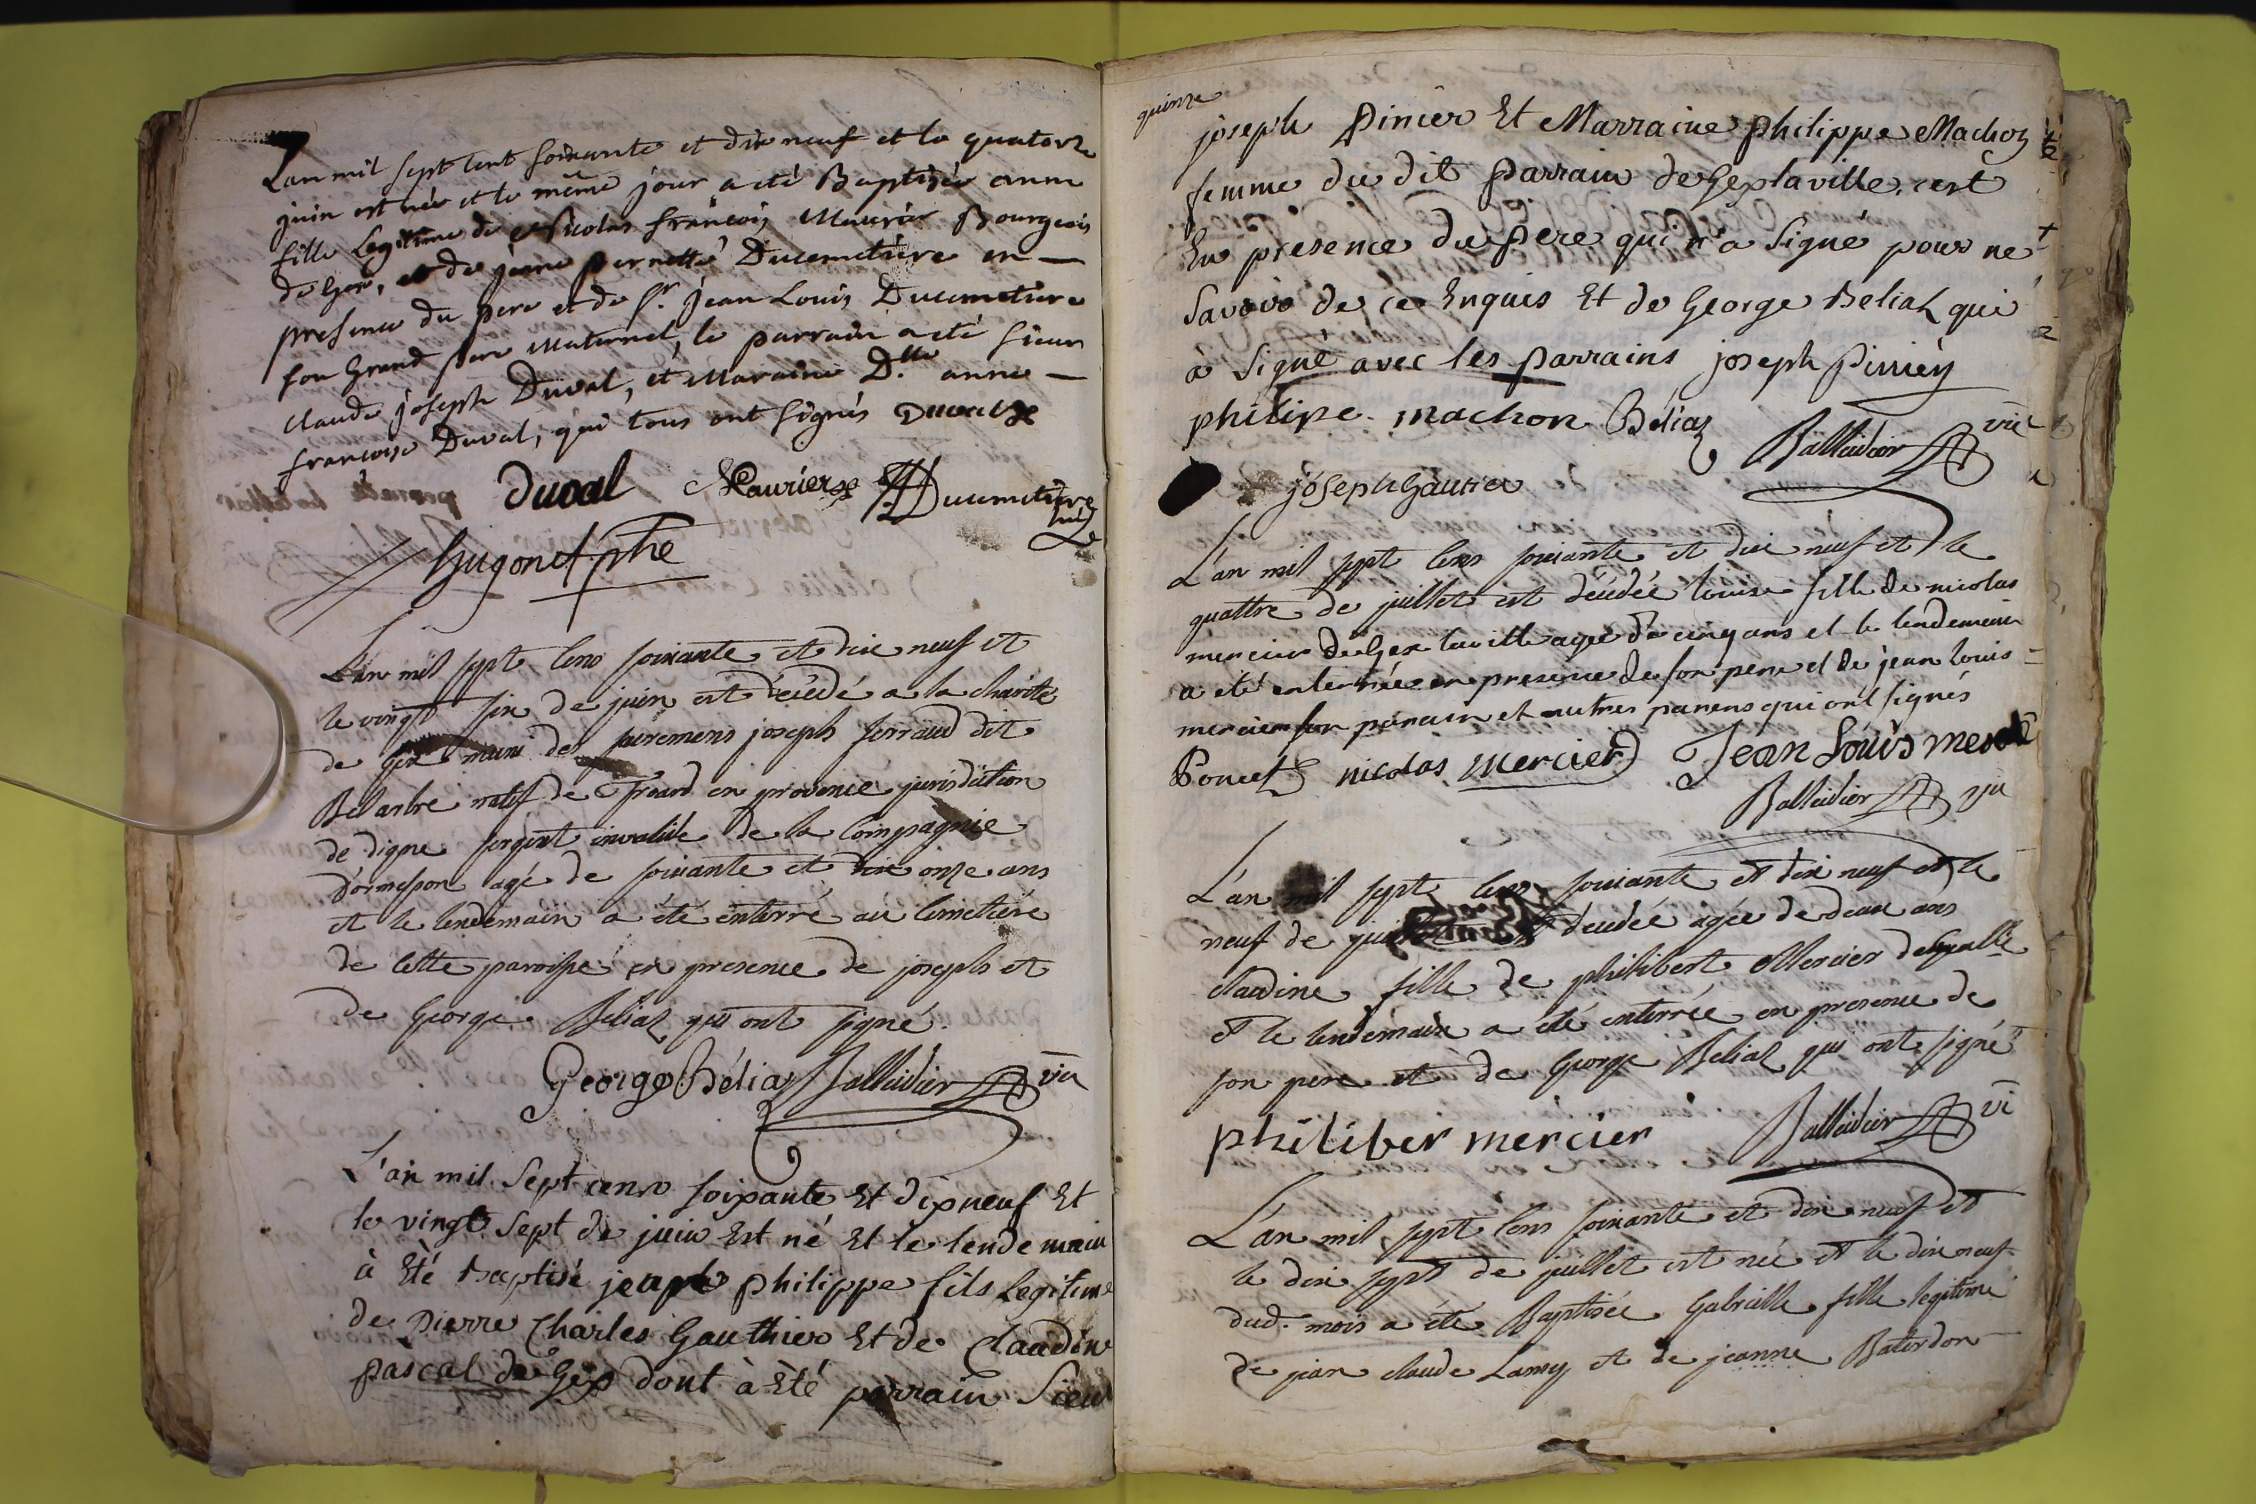 L'an mil sept cent soixante et dix neuf et le quatorze
juin est née et le même jour a été Baptisée anne
fille Legitime de Nicolas françois Maurier Bourgeois
de Gex, et de jeanne pernette Ducimetière en
presence du pere et de Sr. jean Louis Ducimetiere
son Grand pere Maternel, le parrain a été sieur
claude joseph Duval, et Maraine D.lle anne
françoise Duval, qui tous ont signés Duval
Duval Maurier Ducimetière
Hugonet phe
L'an mil sept cens soixante et dix neuf et
le vingt six de juin est décédé a la charité
de Gex muni des sacremens joseph ferraud dit
Belarbre natif de en provence jurisdiction
de digne sergent invalide de la Compagnie
D'ormesson agé de soixante et onze ans
et le lendemain a été enterré au Cimetière
de cette paroisse en presence de joseph et
de George Beliaz qui ont signé.
George Béliaz Balleidier vic
L'an mil Sept cens soixante Et dix neuf Et
le vingt Sept de juin Est né Et le lendemain
à Eté baptisé joseph philippe fils Legitime
de pierre Charles Gauthier Et de Claudine
pascal de Gex dont à Eté parrain Sieur
quinze
joseph pinier Et Marraine philippe Machoz
femme du dit parrain de Gex la ville, c'est
En presence du pere qui n'a Signé pour ne
Savoir de ce Enquis Et de George Beliaz qui
à Signé avec les parrains joseph
philipe machon Béliaz
Balleidier vic
joseph Gautier
L'an mil sept cens soixante et dix neuf et le
quattre de juillet est décédée louise fille de nicolas
mercier de Gex la ville agée de cinq ans et le lendemain
a été enterrée en presence de son pere et de jean louis
mercier son parain et autres parens qui ont signés
Poncet nicolas mercier Jean Louis
Balleidier vic
L'an mil sept cens soixante et dix neuf et le
neuf de juillet est decedée agée de deux ans
claudine fille de philibert Mercier
et le lendemain a été enterrée en presence de
son pere et de George Beliaz qui ont signé
philiber mercier Balleidier vi
L'an mil sept cens soixante et dix neuf et
le dix sept de juillet est née et le dix neuf
dud. mois a été Baptisée Gabrielle fille legitime
de jean claude Lamy et de jeanne Baterdon